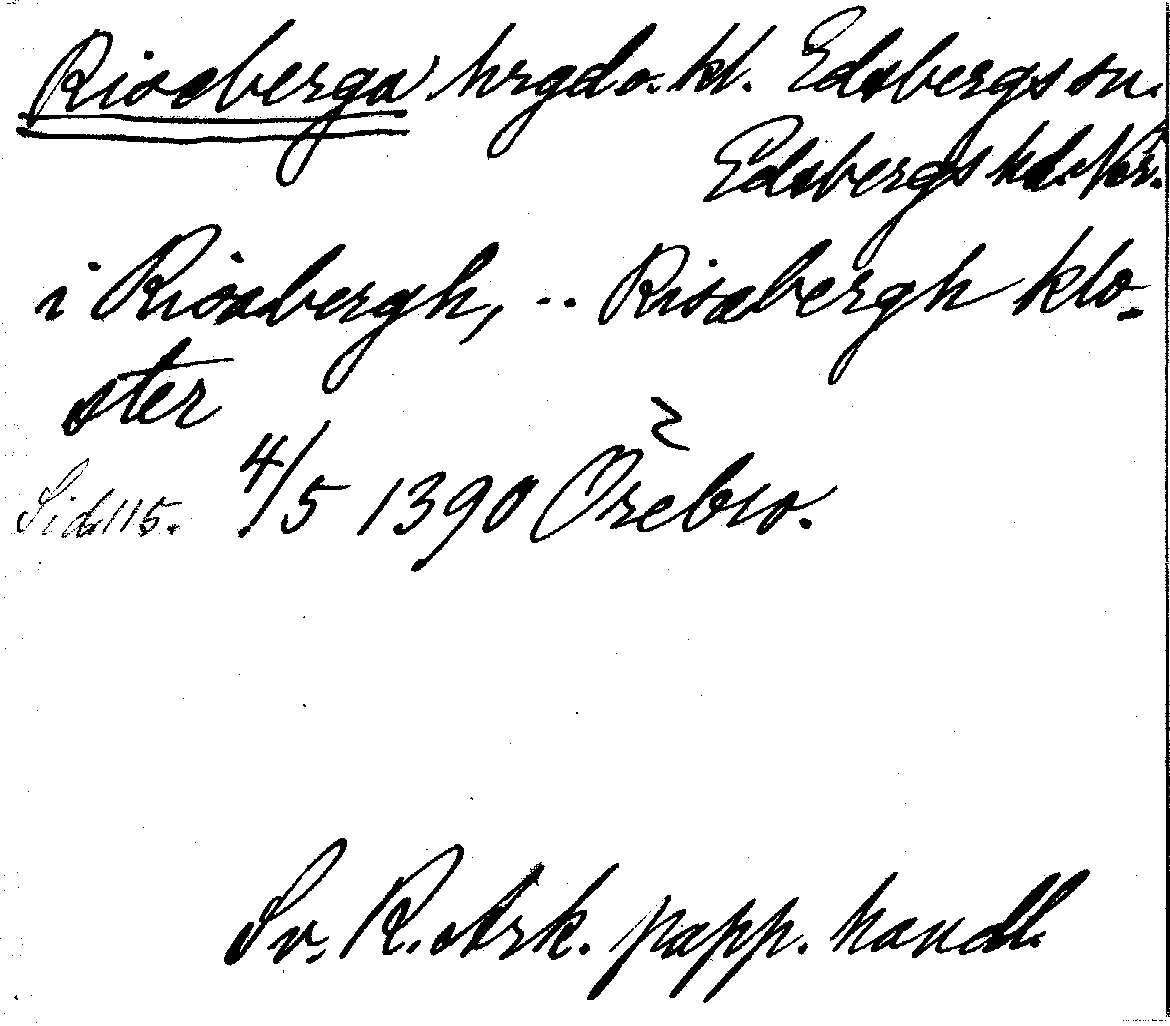 Riseberga hrgd o. kl. Edsbergs sn.
Edsbergs hd. När.
i Risæbergh, .. Risæbergh klo-
ster
Sid. 115. 4/5 1390 Örebro.
Sv. R. Ark. papp. handl.